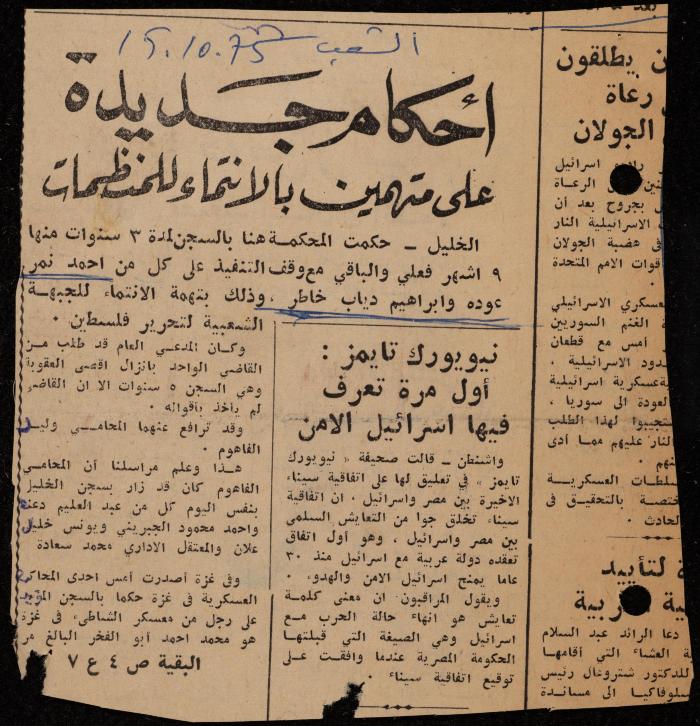 الشعب 15.10.75
أحكام جديدة
على متهمين بالانتماء للمنظمات
الخليل ــ حكمت المحكمة هنا بالسجن لمدة ٣ سنوات منها
٩ اشهر فعلي والباقي مع وقف التنفيذ على كل من احمد نمر
عوده وابراهيم دياب خاطر ، وذلك بتهمة الانتماء للجبهة
الشعبية لتحرير فلسطين ٠
وكان المدعي العام قد طلب من
القاضي الواحد بانزال اقصى العقوبة
وهي السجن ٥ سنوات الا ان القاضي
لم يأخذ بأقواله ٠
وقد ترافع عنهما المحامــي وليد
الفاهوم ٠
هــذا وعلم مراسلنا أن المحامي
الفاهوم كان قد زار بسجن الخليل
بنفس اليوم كل من عبد العليم دعنا
واحمد محمود الجبريني ويونس خليل
علان والمعتقل الاداري محمد سعادة
وفى غزة أصدرت أمس احدى المحاكم
العسكرية فى غزة حكما بالسجن المؤبد
على رجل من معسكر الشاطىء فى غزة
هو محمد احمد أبو الفخر البالغ من
البقية ص ٤ ع ٧
نيويورك تايمز :
أول مرة تعرف
فيها اسرائيل الامن
واشنطن ــ قالت صحيفة « نيويورك
تايمز » في تعليق لها على اتفاقية سيناء
الاخيرة بين مصر واسرائيل ، ان اتفاقية
سيناء تخلق جوا من التعايش السلمي
بين مصر واسرائيل ، وهو أول اتفاق
تعقده دولة عربية مع اسرائيل منذ ٣٠
عاما يمنح اسرائيل الامن والهدوء ٠
ويقول المراقبون ان معنى كلمة
تعايش هو انهاء حالة الحرب مــع
اسرائيل وهي الصيغة التي قبلتها
الحكومة المصرية عندما وافقت علــى
توقيع اتفاقية سيناء ٠
ن يطلقون
رعاة
الجولان
اسرائيل
الرعاة
بجروح بعد أن
الاسرائيلية النار
فى هضبة الجولان
قوات الامم المتحدة
عسكري الاسرائيلي
الغنم السوريين
أمس مع قطعان
دود الاسرائيلية ٠
عسكرية اسرائيلية
العودة الى سوريا ،
تجيبوا لهذا الطلب
النار عليهم ممــا أدى
نهم ٠
سلطات العسكريــة
ختصة بالتحقيق فى
لحادث ٠
لتأييد
دعا الرائد عبد السلام
العشاء التي أقامها
للدكتور شتروغال رئيس
سلوفاكيا الى مساندة